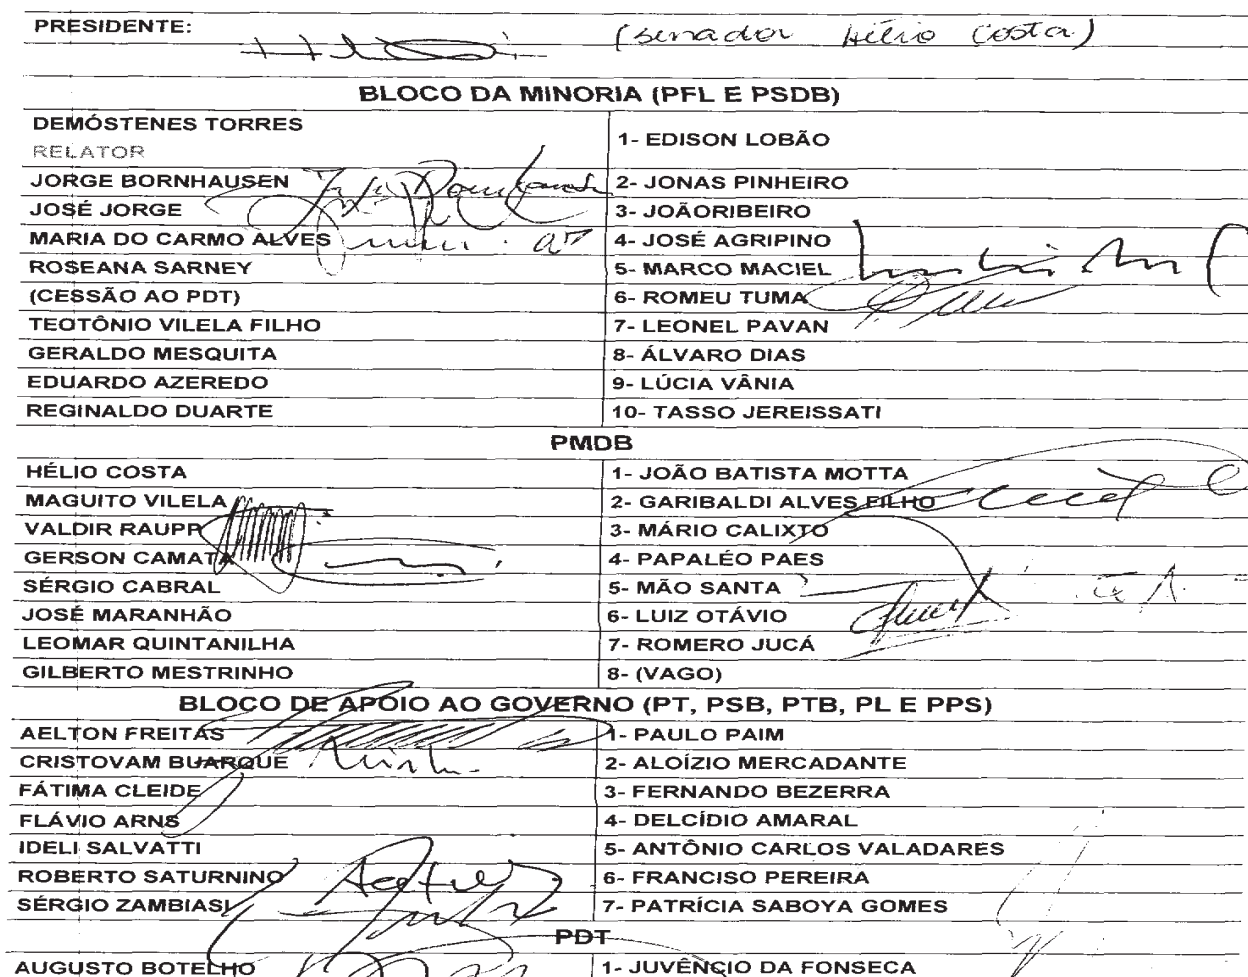 PRESIDENTE: (Senador Hélio Costa)
BLOCO DA MINORIA (PFL E PSDB)
DEMÓSTENES TORRES
RELATOR
1- EDISON LOBÃO
JORGE BORNHAUSEN 2- JONAS PINHEIRO
JOSÉ JORGE 3- JOÃORIBEIRO
MARIA DO CARMO ALVES 4- JOSÉ AGRIPINO
ROSEANA SARNEY 5- MARCO MACIEL
(CESSÃO AO PDT) 6- ROMEU TUMA
TEOTÔNIO VILELA FILHO 7- LEONEL PAVAN
GERALDO MESQUITA 8- ÁLVARO DIAS
EDUARDO AZEREDO 9- LÚCIA VÂNIA
REGINALDO DUARTE 10- TASSO JEREISSATI
PMDB
HÉLIO COSTA 1- JOÃO BATISTA MOTTA
MAGUITO VILELA 2- GARIBALDI ALVES FILHO
VALDIR RAUPP 3- MÁRIO CALIXTO
GERSON CAMATA 4- PAPALÉO PAES
SÉRGIO CABRAL 5- MÃO SANTA
JOSÉ MARANHÃO 6- LUIZ OTÁVIO
LEOMAR QUINTANILHA 7- ROMERO JUCÁ
GILBERTO MESTRINHO 8- (VAGO)
BLOCO DE APOIO AO GOVERNO (PT, PSB, PTB, PL E PPS)
AELTON FREITAS 1- PAULO PAIM
CRISTOVAM BUARQUE 2- ALOÍZIO MERCADANTE
FÁTIMA CLEIDE 3- FERNANDO BEZERRA
FLÁVIO ARNS 4- DELCÍDIO AMARAL
IDELI SALVATTI 5- ANTÔNIO CARLOS VALADARES
ROBERTO SATURNINO 6- FRANCISO PEREIRA
SÉRGIO ZAMBIASI 7- PATRÍCIA SABOYA GOMES
PDT
AUGUSTO BOTELHO 1- JUVÊNCIO DA FONSECA